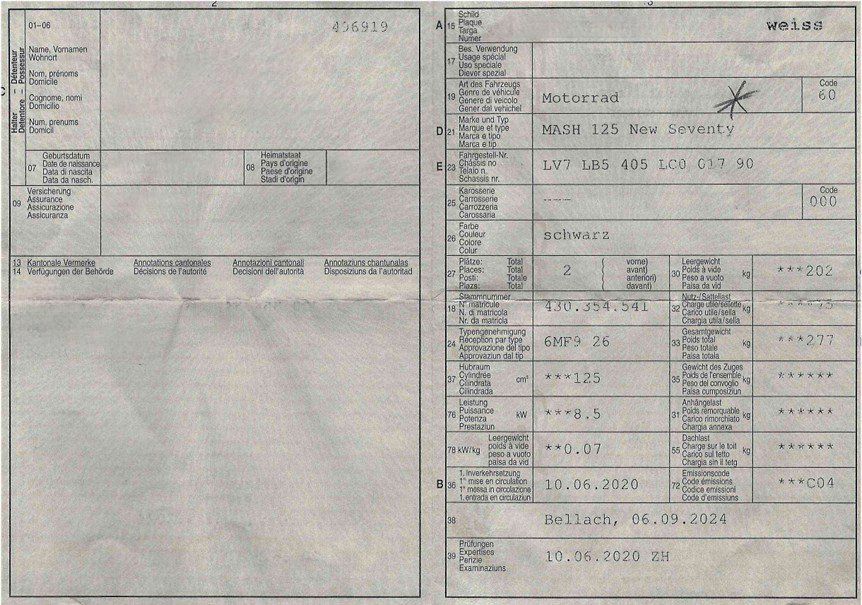 2
01-06
406919
Détenteur
Possessur
Halter
Detentore
Name, Vornamen
Wohnort
Nom, prénoms
Domicile
Cognome, nomi
Domicilio
Num, prenums
Domicil
07
Geburtsdatum
Date de naissance
Data di nascita
Data da nasch.
08
Heimatstaat
Pays d'origine
Paese d'origine
Stadi d'origin
09
Versicherung
Assurance
Assicurazione
Assicuranza
13 Kantonale Vermerke Annotations cantonales Annotazioni cantonali Annotaziuns chantunalas
14 Verfügungen der Behörde Décisions de l'autorité Decisioni dell'autorità Disposiziuns da l'autoritad
3
A 15
Schild
Plaque
Targa
Numer
weiss
17
Bes. Verwendung
Usage spécial
Uso speciale
Diever spezial
19
Art des Fahrzeugs
Genre de véhicule
Genere di veicolo
Gener dal vehichel
Motorrad
Code
60
D 21
Marke und Typ
Marque et type
Marca e tipo
Marca e tip
MASH 125 New Seventy
E 23
Fahrgestell-Nr.
Châssis no
Telaio n.
Schassis nr.
LV7 LB5 405 LC0 017 90
25
Karosserie
Carrosserie
Carrozzeria
Carossaria
---
Code
000
26
Farbe
Couleur
Colore
Colur
schwarz
27
Plätze: Total
Places: Total
Posti: Totale
Plazs: Total
2
( vorne)
( avant)
( anteriori)
( davant)
30
Leergewicht
Poids à vide
Peso a vuoto
Paisa da vid
kg
***202
18
Stammnummer
N° matricule
N. di matricola
Nr. da matricla
430.354.541
32
Nutz-/Sattellast
Charge utile/sellette
Carico utile/sella
Chargia utila/sella
kg
24
Typengenehmigung
Réception par type
Approvazione del tipo
Approvaziun dal tip
6MF9 26
33
Gesamtgewicht
Poids total
Peso totale
Paisa totala
kg
***277
37
Hubraum
Cylindrée
Cilindrata
Cilindrada
cm³
***125
35
Gewicht des Zuges
Poids de l'ensemble
Peso del convoglio
Paisa cumposiziun
kg
******
76
Leistung
Puissance
Potenza
Prestaziun
kW
***8.5
31
Anhängelast
Poids remorquable
Carico rimorchiato
Chargia annexa
kg
******
78 kW/kg
Leergewicht
poids à vide
peso a vuoto
paisa da vid
**0.07
55
Dachlast
Charge sur le toit
Carico sul tetto
Chargia sin il tetg
kg
******
B 36
1. Inverkehrsetzung
1re mise en circulation
1a messa in circolazione
1. entrada en circulaziun
10.06.2020
72
Emissionscode
Code émissions
Codice emissioni
Code d'emissiuns
***C04
38
Bellach, 06.09.2024
39
Prüfungen
Expertises
Perizie
Examinaziuns
10.06.2020 ZH